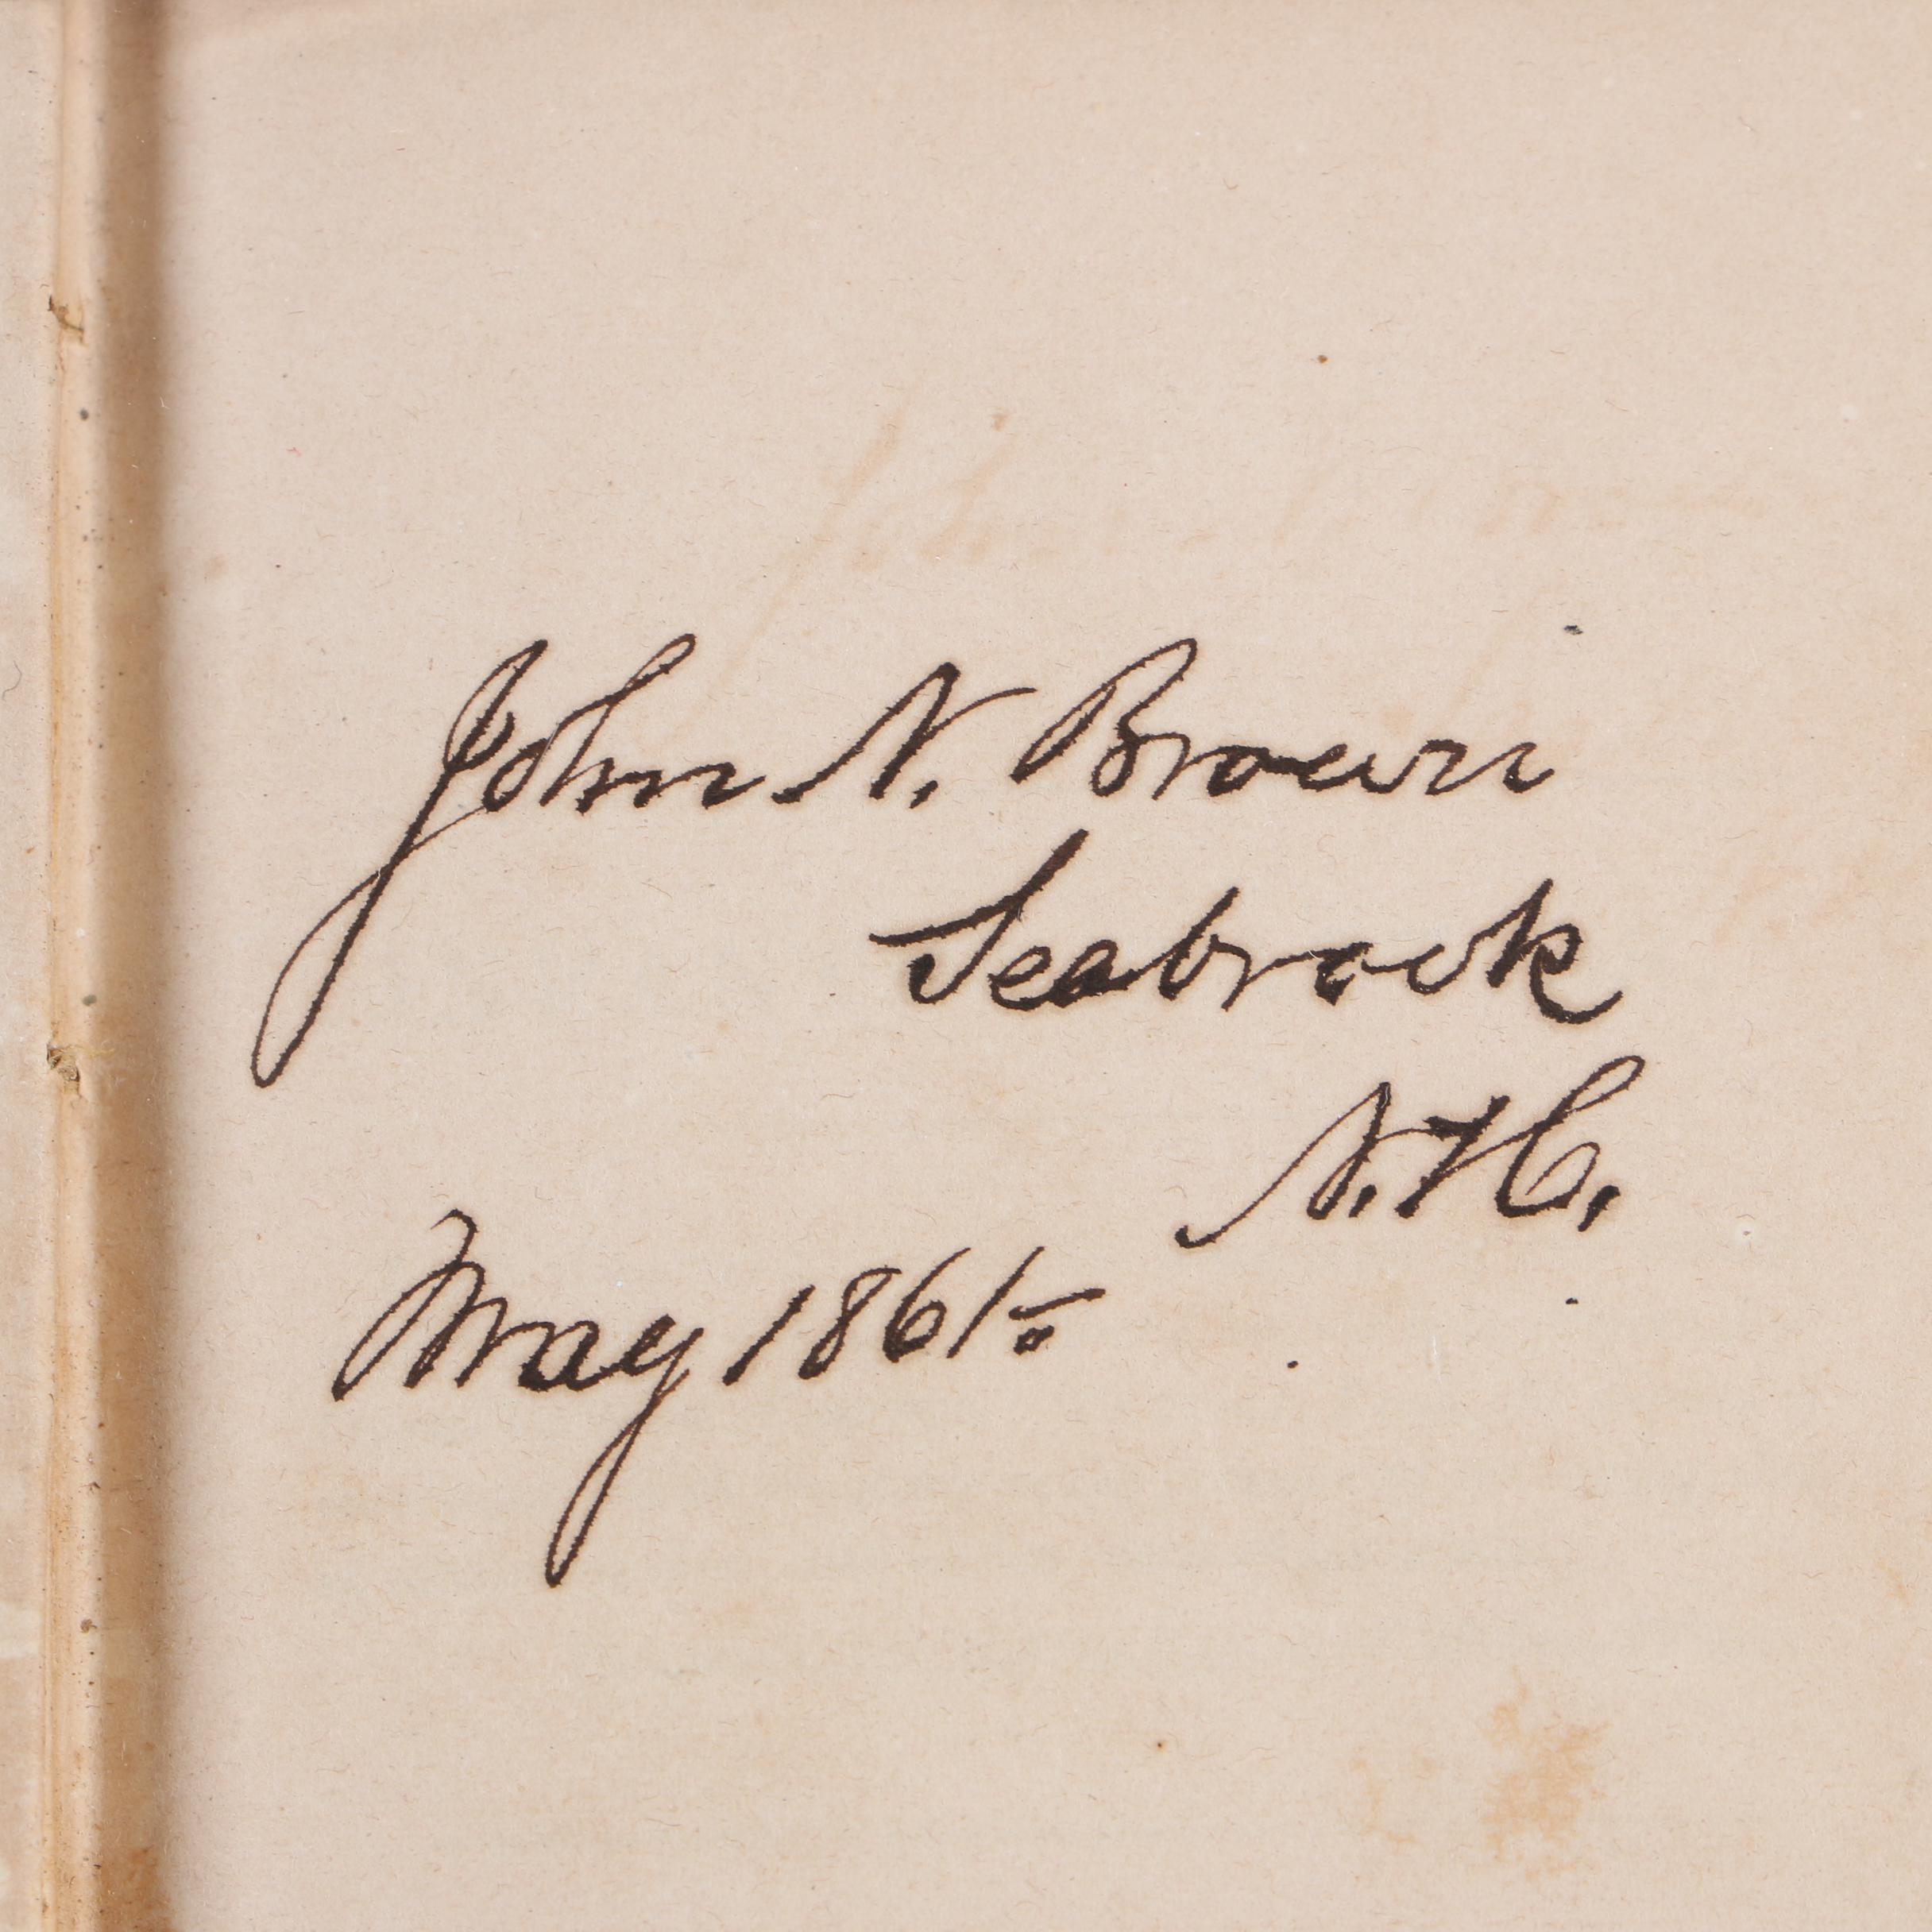 John N. Brown
Seabrook
N.H.
May 1861